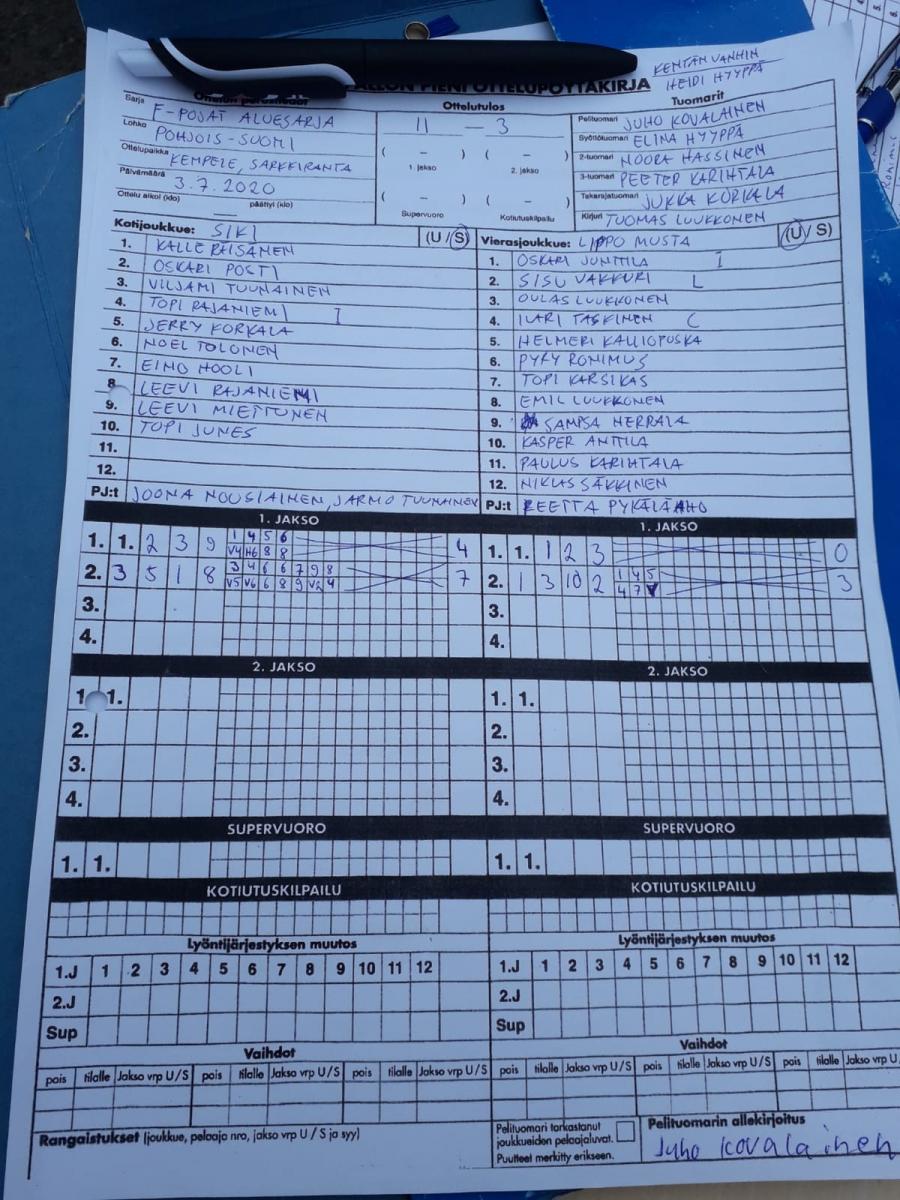 KENTÄN VANHIN
HEIDI HYYPPÄ
PIENI OTTELUPÖYTÄKIRJA
Sarja F-POJAT ALUESARJA
Lohko POHJOIS-SUOMI
Ottelupaikka KEMPELE, SARKKIRANTA
Päivämäärä 3.7.2020
Ottelu alkoi (klo) päättyi (klo)
Ottelutulos
11 — 3
( – ) ( – )
1. jakso 2. jakso
( – ) ( – )
Supervuoro Kotiutuskilpailu
Tuomarit
Pelituomari JUHO KOVALAINEN
Syöttötuomari ELINA HYYPPÄ
2-tuomari NOORA HASSINEN
3-tuomari PEETER KARIHTALA
Takarajatuomari JUKKA KORKALA
Kirjuri TUOMAS LUUKKONEN
Kotijoukkue: SIKI (U / S)
1. KALLE RÄISÄNEN
2. OSKARI POSTI
3. VILJAMI TUUNAINEN
4. TOPI RAJANIEMI I
5. JERRY KORKALA
6. NOEL TOLONEN
7. EINO HOOLI
8 LEEVI RAJANIEMI
9. LEEVI MIETTUNEN
10. TOPI JUNES
11.
12.
PJ:t JOONA NOUSIAINEN, JARMO TUUNAINEN
Vierasjoukkue: LIPPO MUSTA (U / S)
1. OSKARI JUNTTILA I
2. SISU VAKKURI L
3. OULAS LUUKKONEN
4. ILARI TASKINEN C
5. HELMERI KALLIOPUSKA
6. PYRY RONIMUS
7. TOPI KARSIKAS
8. EMIL LUUKKONEN
9. SAMPSA HERRALA
10. KASPER ANTTILA
11. PAULUS KARIHTALA
12. NIKLAS SÄKKINEN
PJ:t REETTA PYKÄLÄAHO
1. JAKSO
1. 1. 2 3 9 1 4 5 6 4
V4 H6 8 8
2. 3 5 1 8 3 4 6 6 7 9 8 7
V5 V6 6 8 9 V2 4
3.
4.
1. JAKSO
1. 1. 1 2 3 0
2. 1 3 10 2 1 4 5 3
4 7
3.
4.
2. JAKSO
1 1.
2.
3.
4.
2. JAKSO
1. 1.
2.
3.
4.
SUPERVUORO
1. 1.
SUPERVUORO
1. 1.
KOTIUTUSKILPAILU
KOTIUTUSKILPAILU
Lyöntijärjestyksen muutos
1.J 1 2 3 4 5 6 7 8 9 10 11 12
2.J
Sup
Lyöntijärjestyksen muutos
1.J 1 2 3 4 5 6 7 8 9 10 11 12
2.J
Sup
Vaihdot
pois tilalle Jakso vrp U / S pois tilalle Jakso vrp U / S pois tilalle Jakso vrp U / S
Vaihdot
pois tilalle Jakso vrp U / S pois tilalle Jakso vrp U / S pois tilalle Jakso vrp U
Rangaistukset (joukkue, pelaaja nro, jakso vrp U / S ja syy)
Pelituomari tarkastanut
joukkueiden pelaajaluvat.
Puutteet merkitty erikseen.
Pelituomarin allekirjoitus
Juho Kovalainen